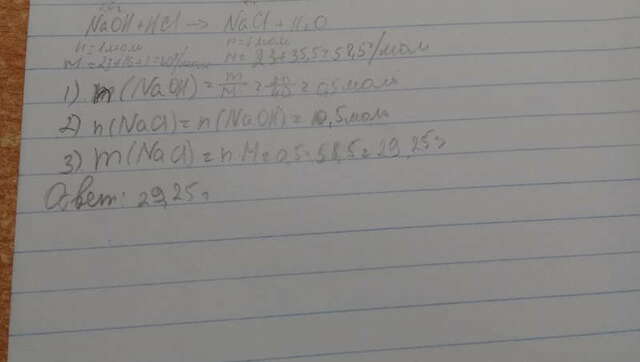 NaOH + HCl → NaCl + H₂O
n = 1 моль n = 1 моль
M = 23 + 35,5 = 58,5 г/моль
1) n(NaOH) = m/M = = 0,5 моль
2) n(NaCl) = n(NaOH) = 0,5 моль
3) m(NaCl) = n·M = 0,5·58,5 = 29,25 г
Ответ: 29,25 г